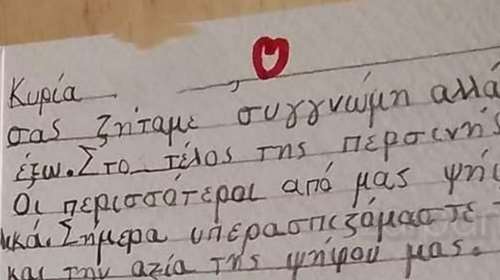 Κυρία ,
σας ζηταμε συγγνώμη αλλά
έξω. Στο τέλος της περσινή
Οι περισσότεροι από μας ψήι
ικά. Σήμερα υπερασπιζόμαστε τ
και την αξία της ψήφου μας.